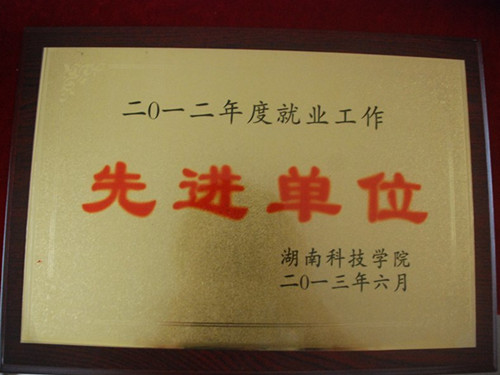 二〇一二年度就业工作
先进单位
湖南科技学院
二〇一三年六月